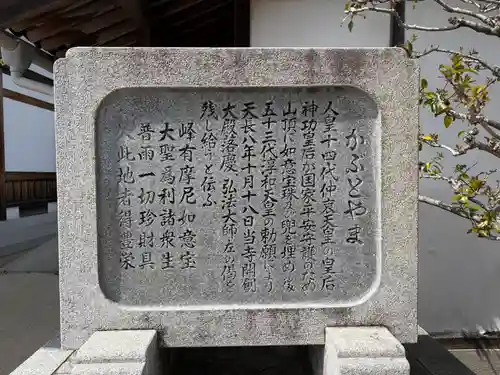 かぶとやま
人皇十四代仲哀天皇の皇后
神功皇后が国家平安守護のため
山頂に如意宝珠の兜を埋め後
五十三代淳和天皇の勅願により
天長八年十月十八日当寺開創
大殿落慶、弘法大師左の偈を
残し給うと伝ふ
峰有摩尼如意宝
大聖為利諸衆生
普雨一切珍財具
入此地者得豊栄